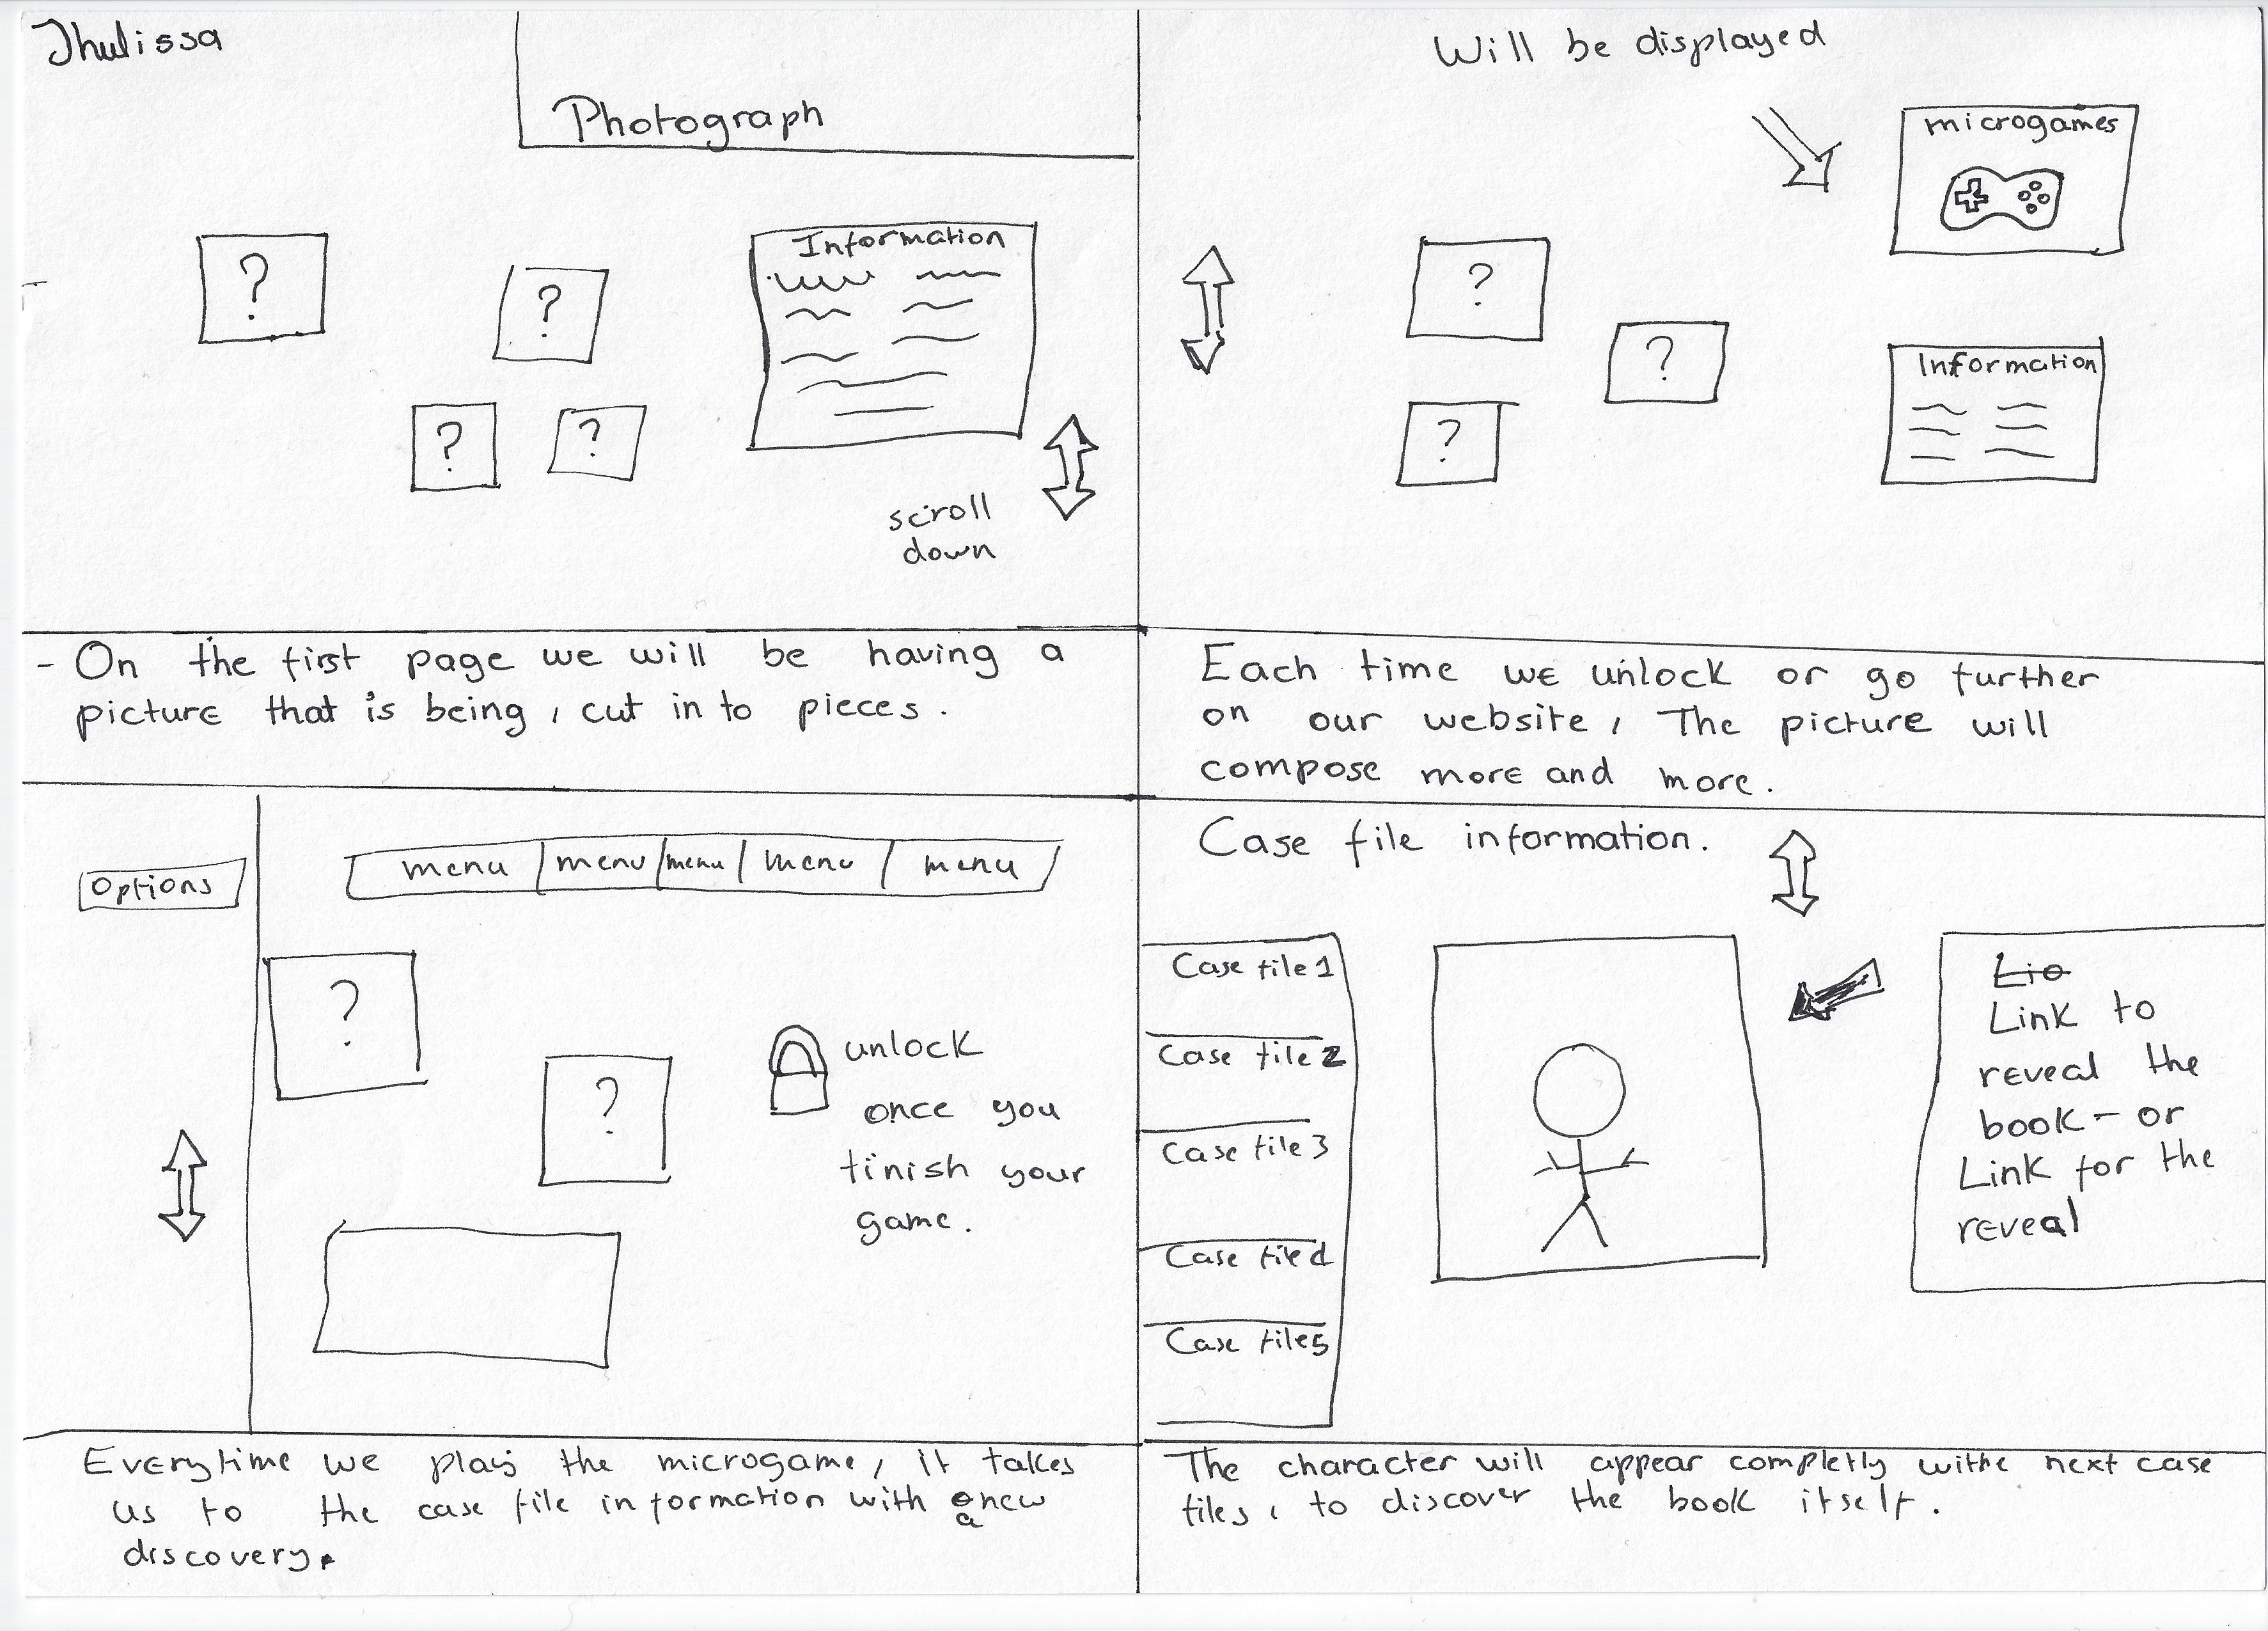 Jhulissa
Photograph
?
?
?
?
Information
scroll
down
- On the first page we will be having a
picture that is being, cut in to pieces.
Will be displayed
microgames
?
?
?
Information
Each time we unlock or go further
on our website, The picture will
compose more and more.
Options
menu menu menu menu menu
?
?
unlock
once you
finish your
game.
Everytime we play the microgame, it takes
us to the case file information with a new
discovery.
Case file information.
Case file 1
Case file 2
Case file 3
Case file 4
Case file 5
Lio
Link to
reveal the
book - or
Link for the
reveal
The character will appear completly withe next case
files, to discover the book itself.